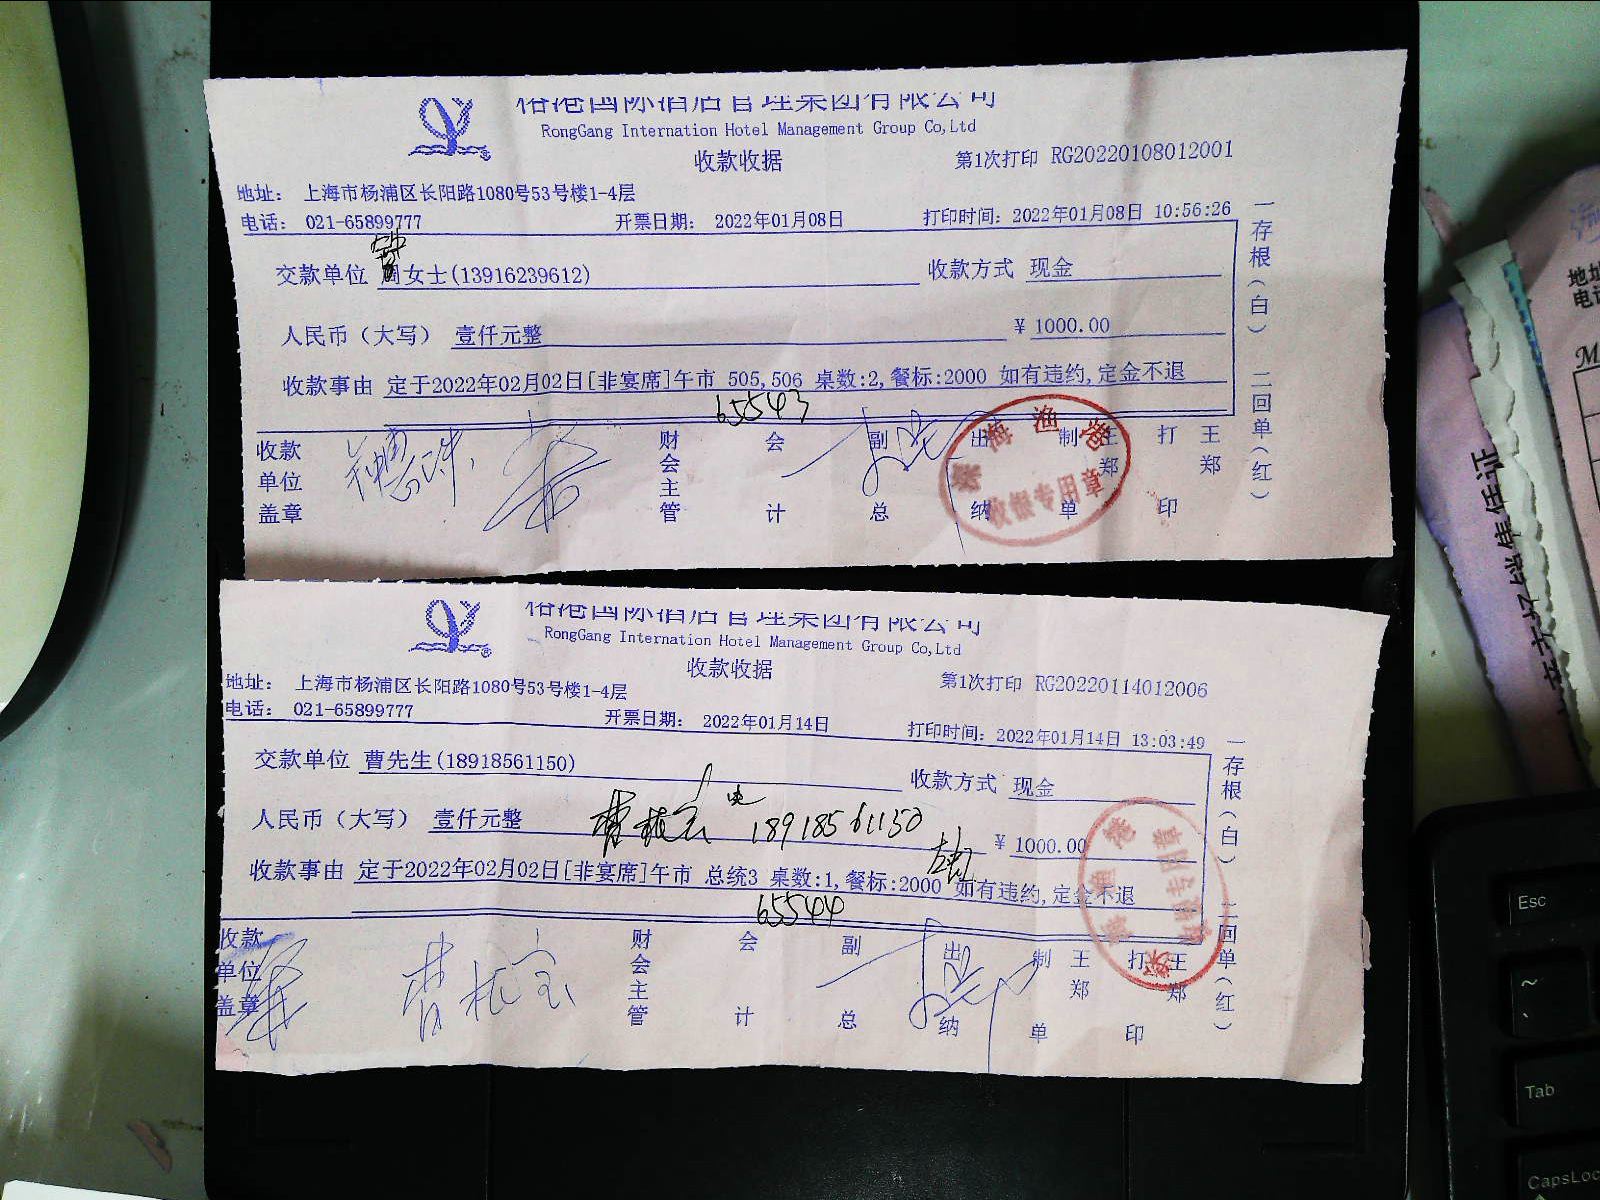 港国际酒店管理集团有限公司
RongGang Internation Hotel Management Group Co,Ltd
收款收据
第1次打印 RG20220108012001
地址: 上海市杨浦区长阳路1080号53号楼1-4层
电话: 021-65899777 开票日期: 2022年01月08日 打印时间: 2022年01月08日 10:56:26
交款单位 周女士(13916239612) 收款方式 现金
人民币(大写) 壹仟元整 ¥ 1000.00
收款事由 定于2022年02月02日[非宴席]午市 505,506 桌数:2,餐标:2000 如有违约,定金不退
65543
收款单位盖章 财会主管 会计 副总 出纳 制单 王郑 打印 王郑
一存根(白) 二回单(红)
海渔港
收银专用章
港国际酒店管理集团有限公司
RongGang Internation Hotel Management Group Co,Ltd
收款收据
第1次打印 RG20220114012006
地址: 上海市杨浦区长阳路1080号53号楼1-4层
电话: 021-65899777 开票日期: 2022年01月14日 打印时间: 2022年01月14日 13:03:49
交款单位 曹先生(18918561150) 收款方式 现金
18918561150
人民币(大写) 壹仟元整 ¥ 1000.00
收款事由 定于2022年02月02日[非宴席]午市 总统3 桌数:1,餐标:2000 如有违约,定金不退
65544
收款单位盖章 财会主管 会计 副总 出纳 制单 王郑 打印 王郑
一存根(白) 二回单(红)
Esc
~
Tab
CapsLoc
地址